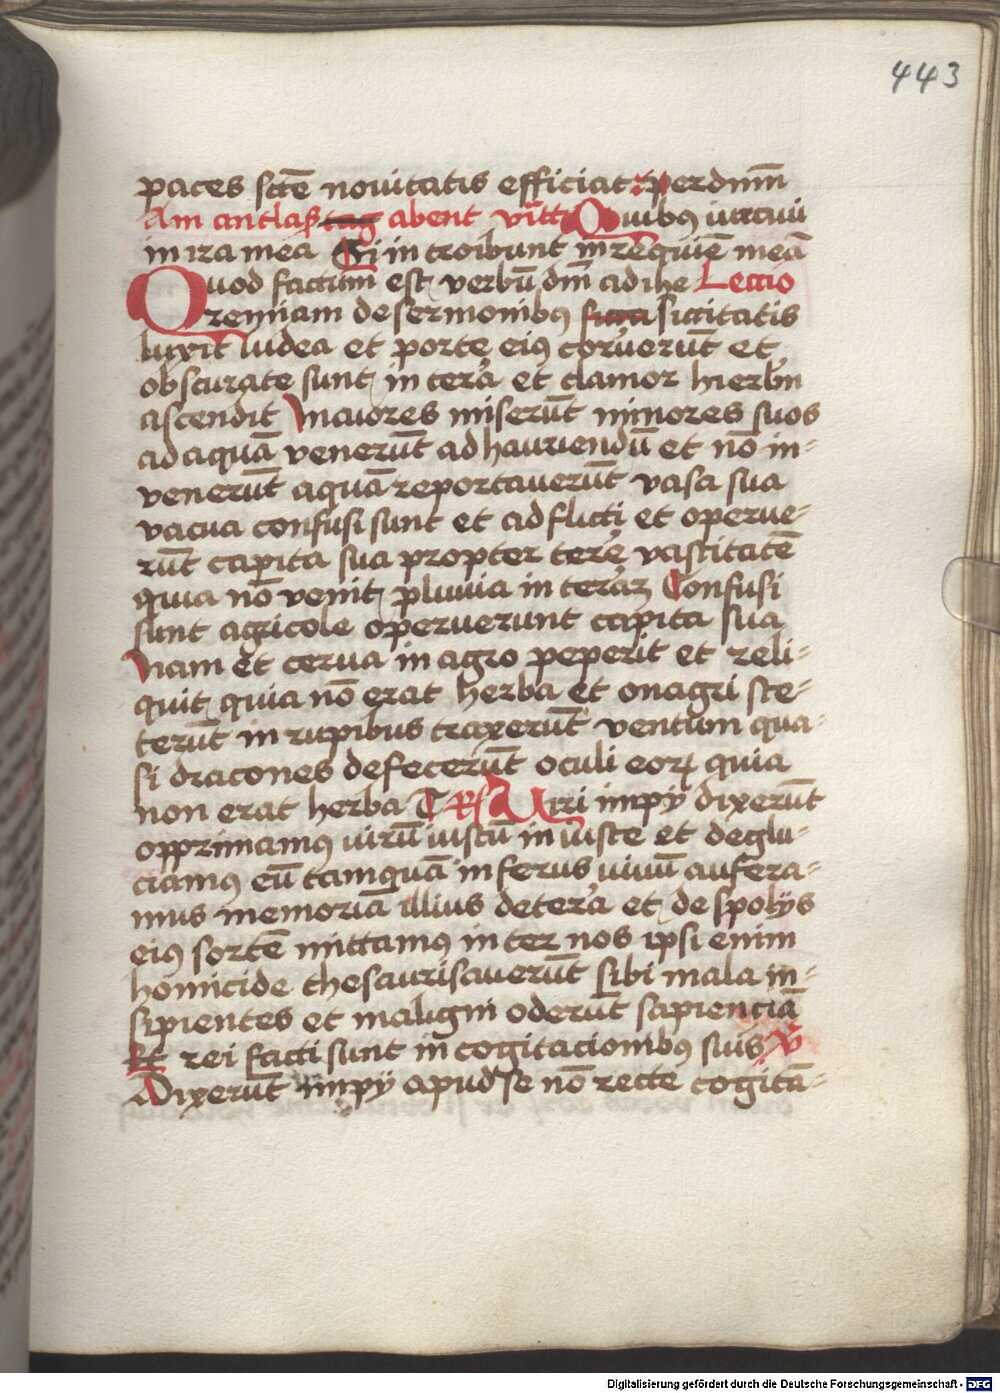 443
paces sctē nouitatis efficiat p perdnm̄
Am antlaß tag abent vītt Quibꝯ iuraui
in ira mea Si in troibunt in requiē meā
Quod factum est verbū dm̄ ad ihe Lectio
remiam de sermonibꝯ siccitatis
luxit iudea et porte eiꝯ coruerūt et
obscurate sunt in tera et clamor hierlm̄
ascendit Maiores miserūt minores suos
ad aquā venerūt ad hauriendū et nō in-
venerūt aquā reportaverūt vasa sua
vacua confusi sunt et adflicti et operue-
rūt capita sua propter tere vastitatē
quia nō venit pluuia in terā Confusi
sunt agricole operuerunt capita sua
Nam et cerva in agro peperit et reli-
quit quia nō erat herba et onagri ste-
terūt in rupibus traxerūt ventum qua-
si dracones defecerūt oculi eoꝝ quia
non erat herba T Rß Uiri impÿ dixerūt
opprimamꝯ uirū iustū in iuste et deglu-
ciamꝯ eū tamquā inferus uiuū aufera-
mus memoriā illius de tera et de spolÿs
eiꝯ sortē mittamꝯ inter nos ipsi enim
homicide thesaurisaverūt sibi mala in-
sipientes et maligni oderūt sapienciā
Et rei facti sunt in cogitacionibꝯ suis v̄
Dixerūt impÿ apud se nō recte cogitā-
Digitalisierung gefördert durch die Deutsche Forschungsgemeinschaft - DFG